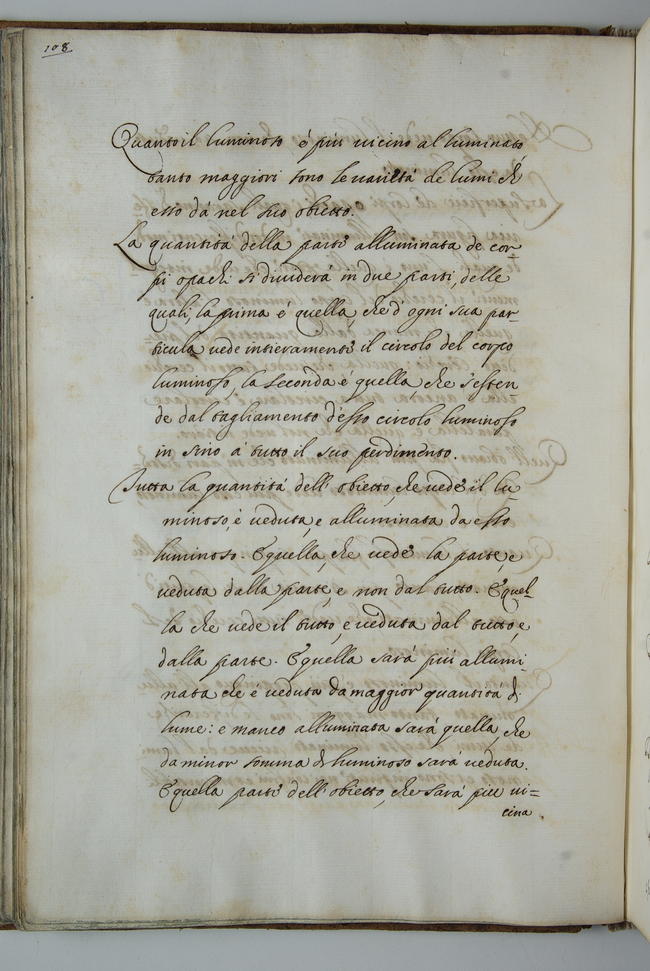 108
Quanto il luminoso è più vicino al luminato
tanto maggiori sono le varietà de lumi ch̃
esso dà nel suo obietto.
La quantità della parte alluminata de cor=
pi opachi si dividerà in due parti, delle
quali, la prima è quella, che d'ogni sua par=
ticula vede intieramente il circolo del corpo
luminoso, la seconda è quella, che s'esten
de dal tagliamento d'esso circolo luminoso
in sino à tutto il suo perdimento.
Tutta la quantità dell'obietto, che vede il lu=
minoso, è veduta, e alluminata da esso
luminoso. Et quella, che vede la parte, è
veduta dalla parte, e non dal tutto. Et quel=
la che vede il tutto, e veduta dal tutto, e
dalla parte. Et quella sarà più allumi=
nata che è veduta da maggior quantità di
lume: e manco alluminata sarà quella, che
da minor somma di luminoso sarà veduta.
Et quella parte dell'obietto, che sarà più vi=
cina